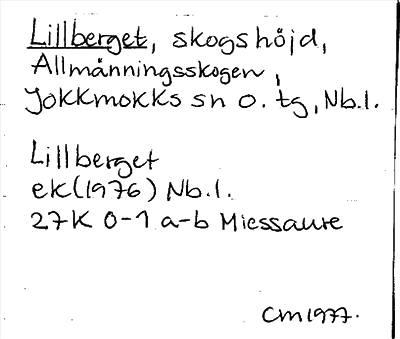 Lillberget, skogshöjd,
Allmänningsskogen,
Jokkmokks sn o. tg, Nb.l.
Lillberget
ek(1976) Nb.l.
27K 0-1 a-b Miessaure
CM 1977.